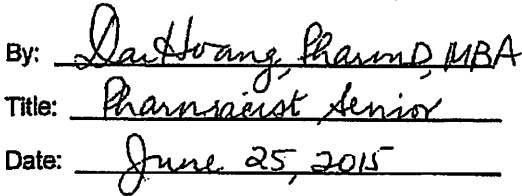 By: Dai Hoang, PharmD, MBA
Title: Pharmacist Senior
Date: June 25, 2015